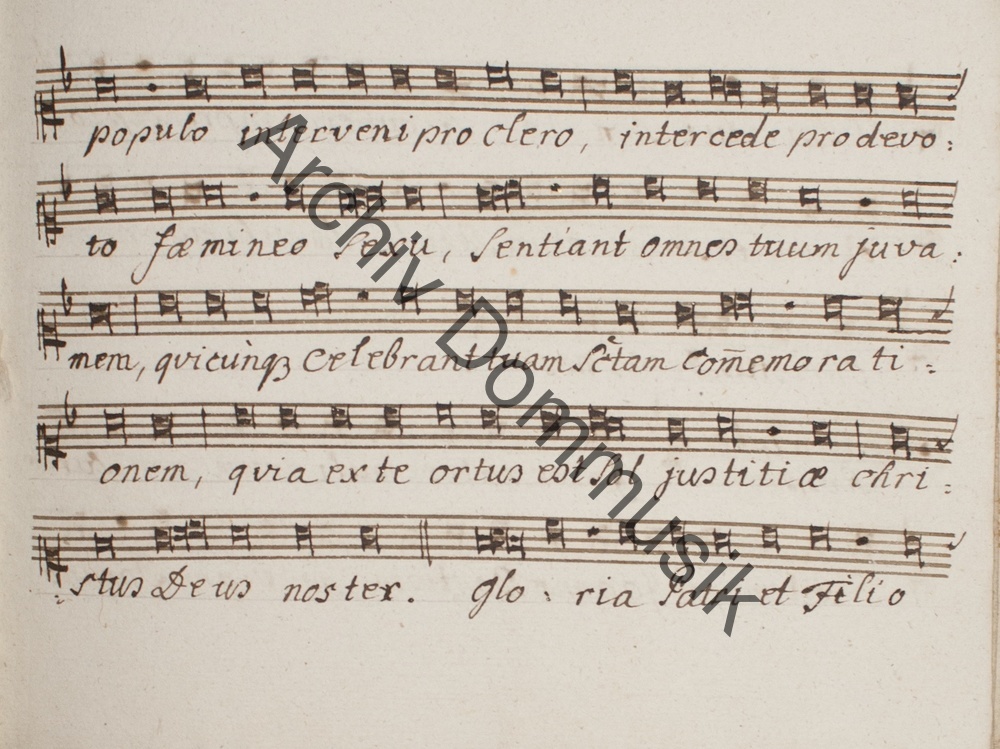 populo interveni pro clero, intercede pro devo:
to fæmineo sexu, sentiant omnes tuum juva:
men, qvicunq₃ celebrant tuam Sctam Com̄emorati:
onem, qvia ex te ortus est sol justitiæ chri:
:stus Deus noster. glo: ria Patri et Filio
Archiv Dommusik